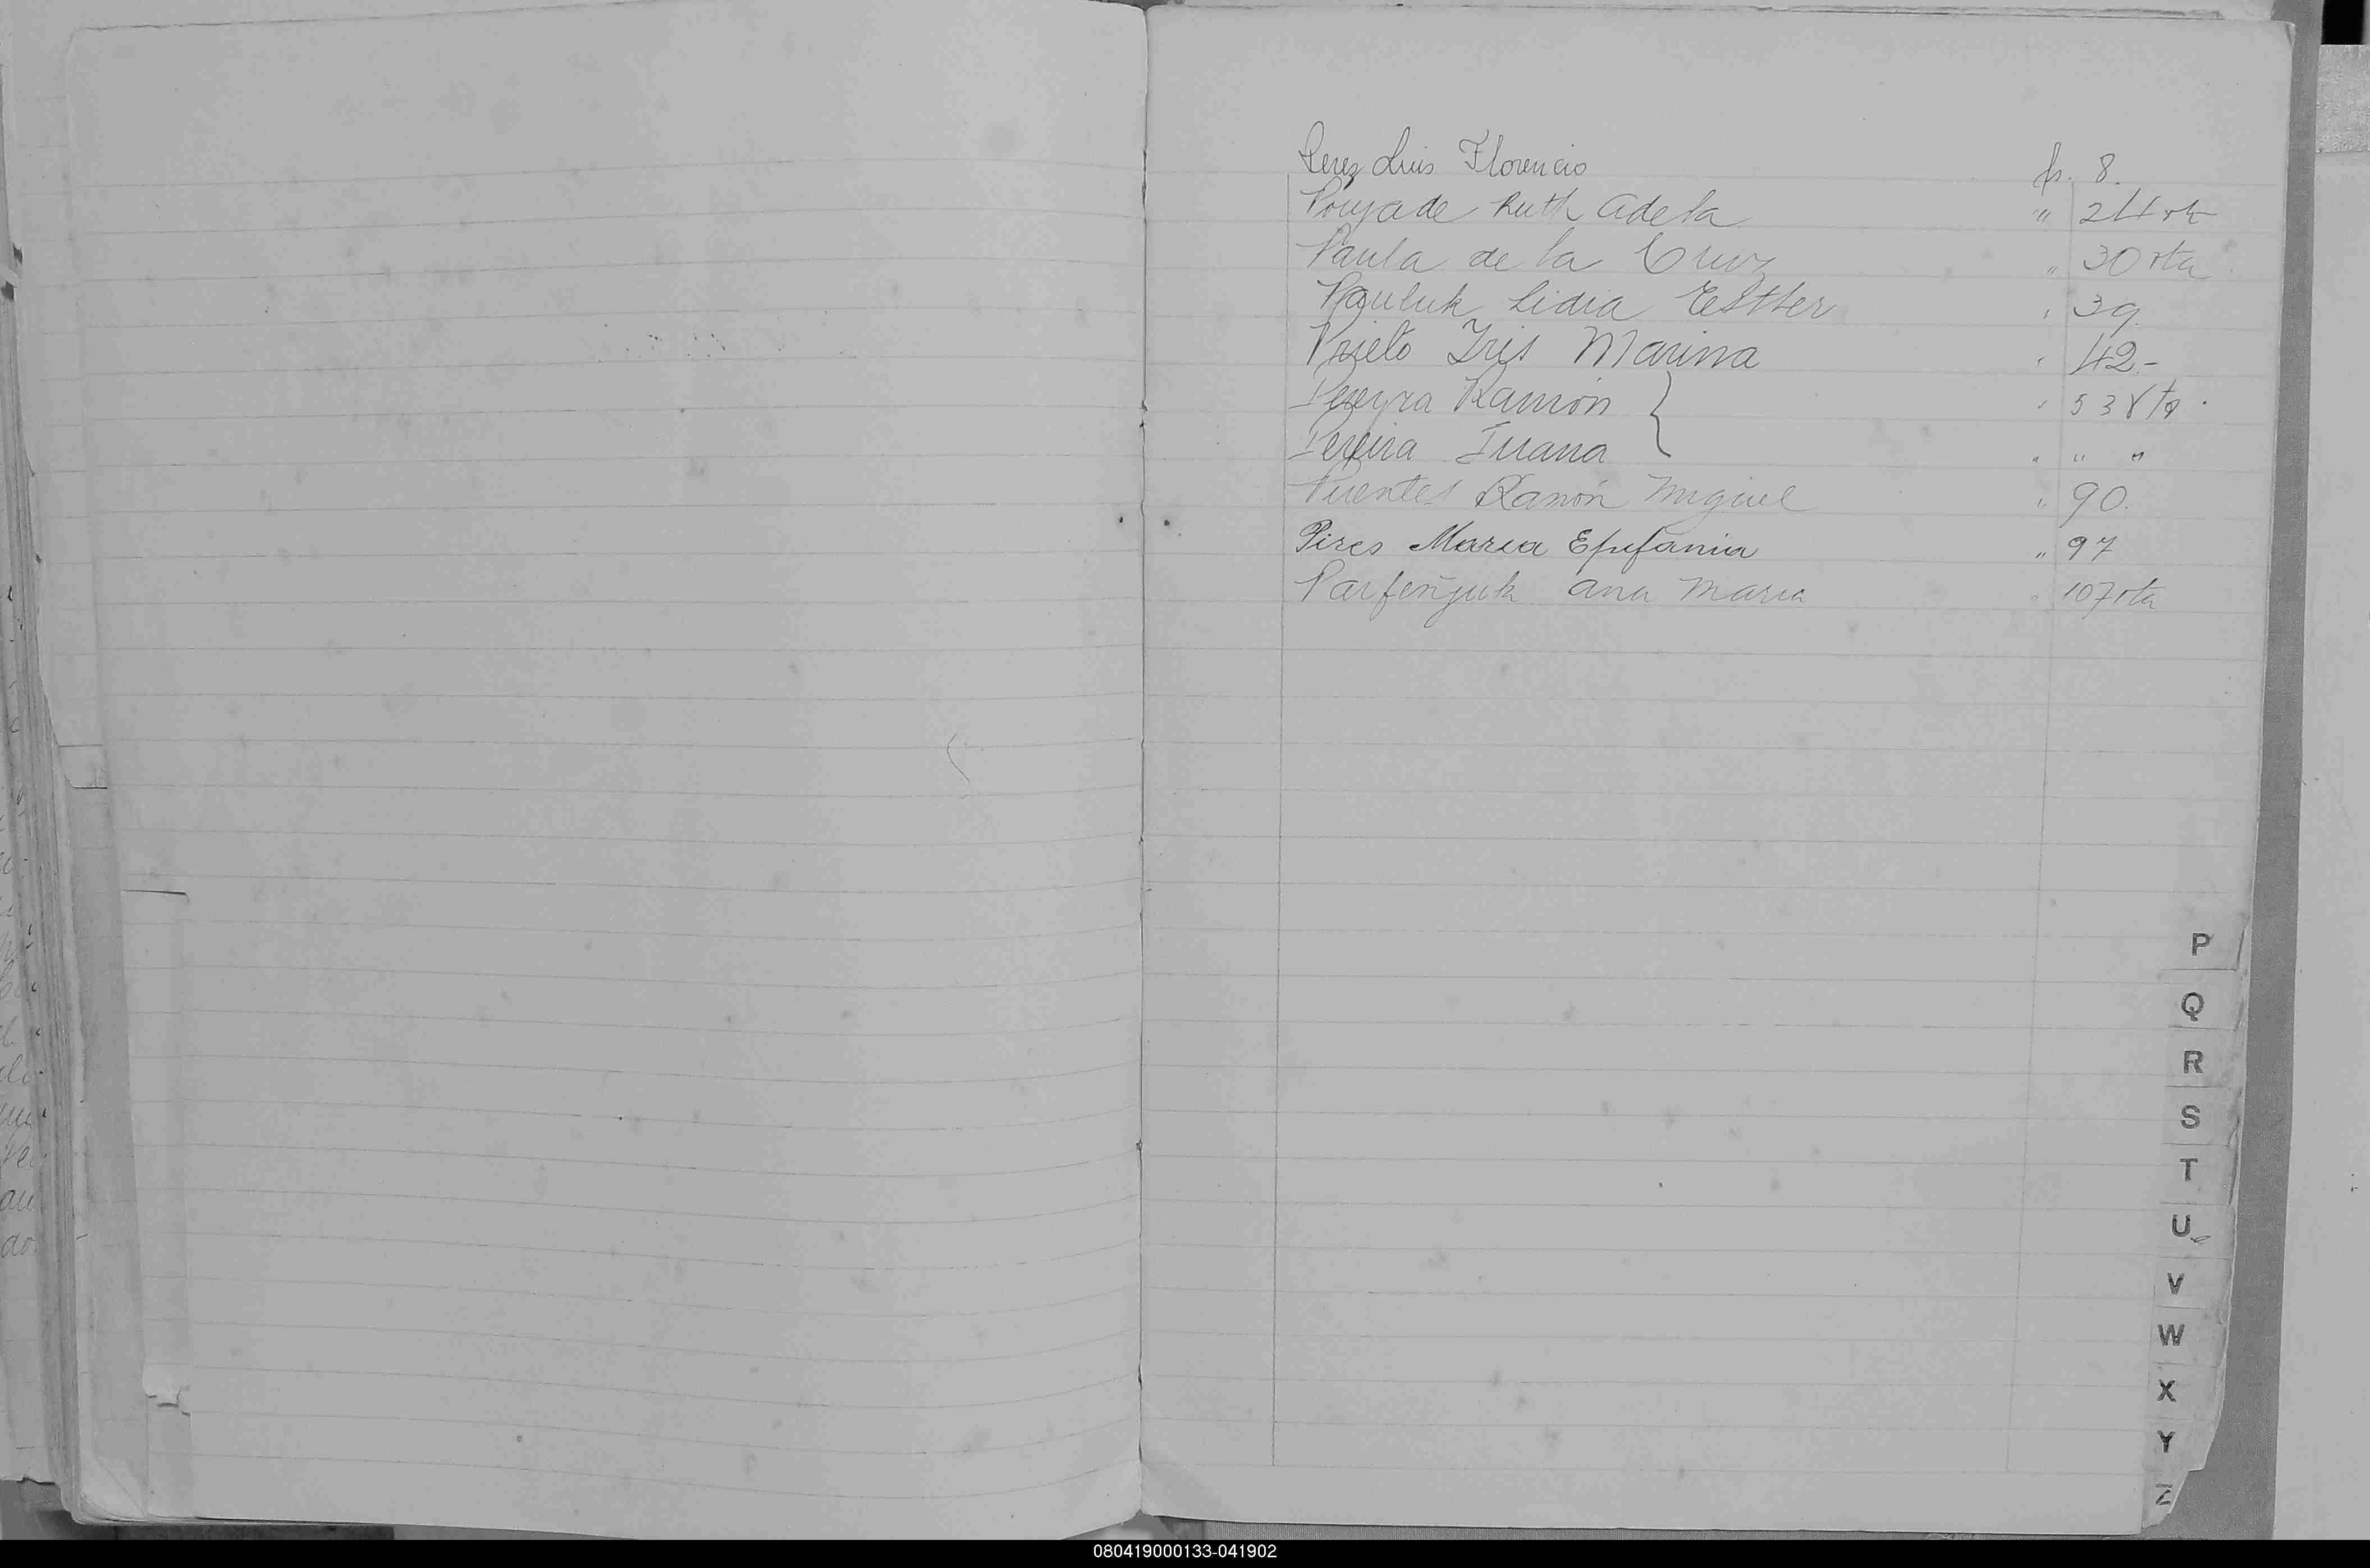 Perez Luis Florencio fs. 8.
Pouyade Ruth Adela " 24 vta
Paula de la Cruz " 30 vta
Pauluk Lidia Esther " 39.
Prieto Iris Marina " 42-
Pereyra Ramón } " 53 vta
Pereira Juana } " " "
Puentes Ramón Miguel " 90.
Pires Maria Epifania " 97
Parfeñjuk Ana Maria " 107 vta
P
Q
R
S
T
U
V
W
X
Y
Z
080419000133-041902